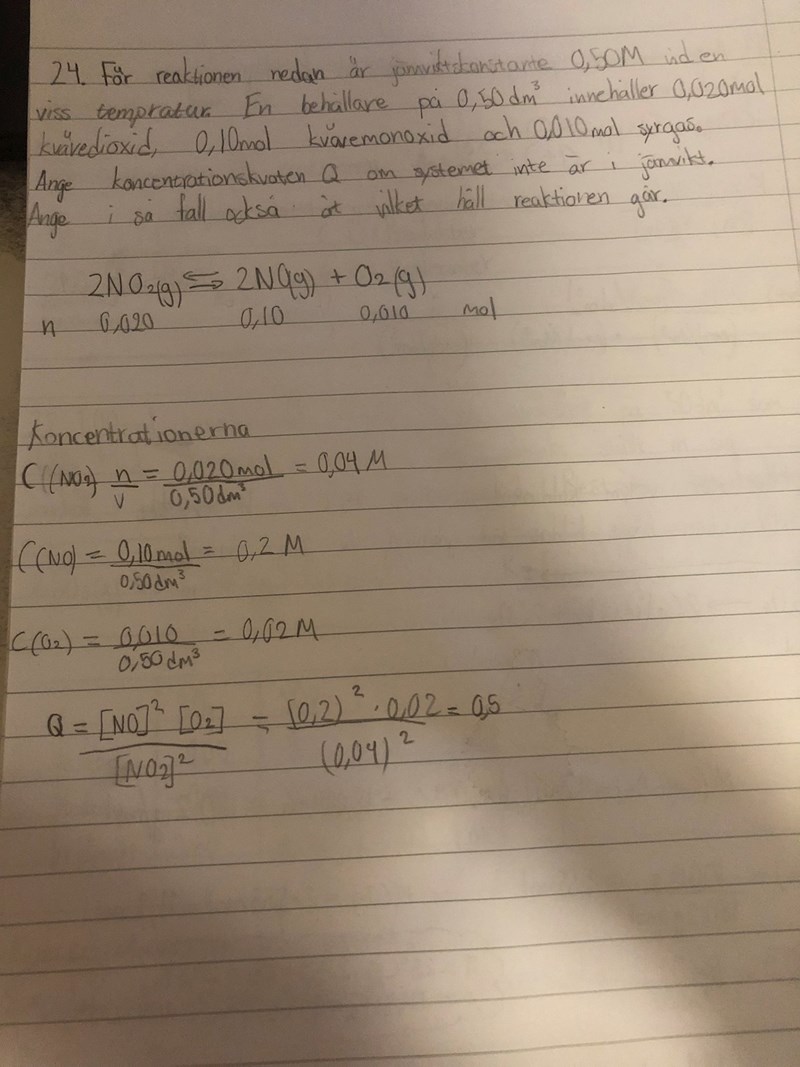 24. För reaktionen nedan är jämviktskonstante 0,50M vid en
viss tempratur. En behållare på 0,50 dm³ innehåller 0,020mol
kvävedioxid, 0,10mol kvävemonoxid och 0,010 mol syrgas.
Ange koncentrationskvoten Q om systemet inte är i jämvikt.
Ange i så fall också åt vilket håll reaktionen går.
2NO₂(g) ⇌ 2NO(g) + O₂(g)
n 0,020 0,10 0,010 mol
Koncentrationerna
C(NO₂) n/v = 0,020mol/0,50dm³ = 0,04 M
C(NO) = 0,10mol/0,50dm³ = 0,2 M
C(O₂) = 0,010/0,50 dm³ = 0,02 M
Q = [NO]² [O₂]/[NO₂]² = (0,2)² · 0,02/(0,04)² = 0,5